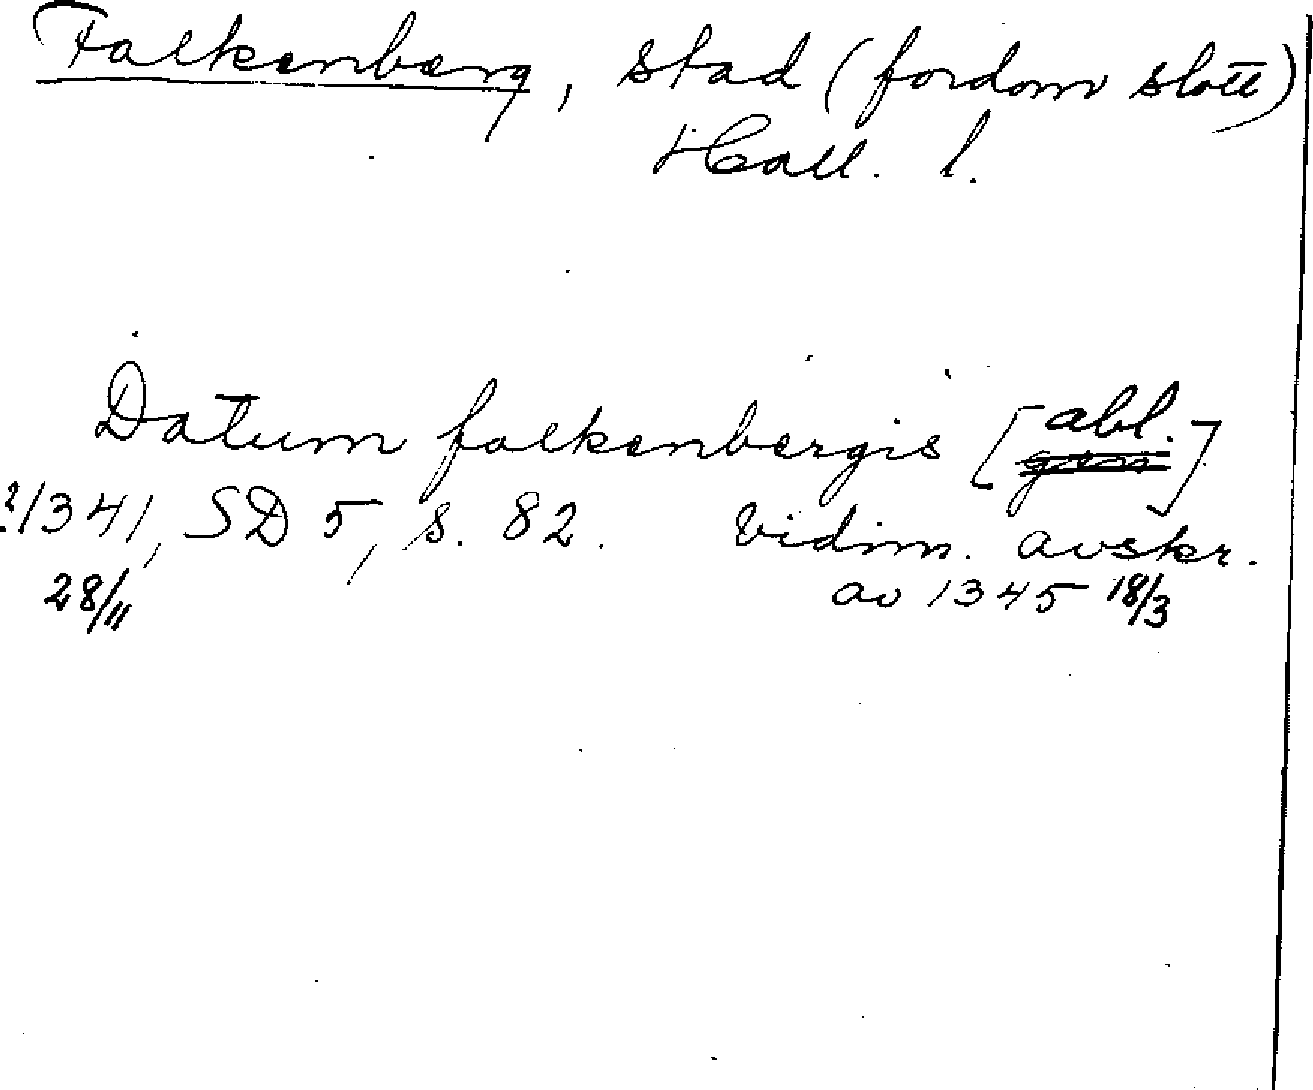 Falkenberg, stad (fordom slott)
Hall. l.
Datum falkenbergis [abl.]
1341, SD 5, s. 82. Vidim. avskr.
28/11 av 1345 18/3